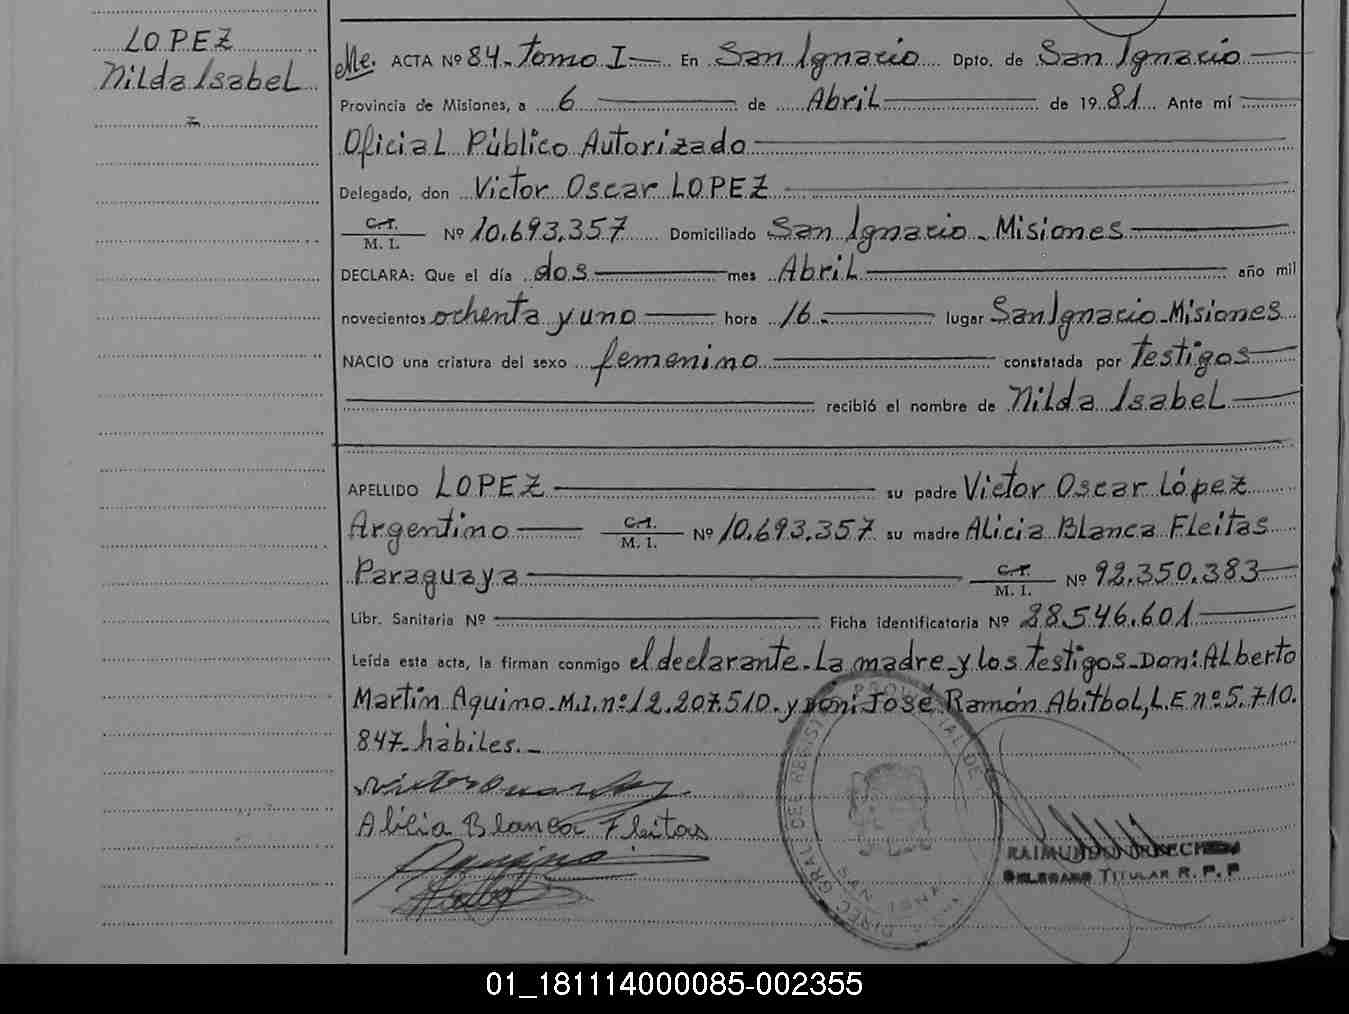 LOPEZ
Nilda Isabel
ACTA Nº 84. Tomo I — En San Ignacio Dpto. de San Ignacio
Provincia de Misiones, a 6 de Abril de 1981 Ante mí
Oficial Público Autorizado
Delegado, don Victor Oscar LOPEZ
C.I.
M. I. Nº 10.693.357 Domiciliado San Ignacio - Misiones
DECLARA: Que el día dos mes Abril año mil
novecientos ochenta y uno hora 16. lugar San Ignacio - Misiones
NACIO una criatura del sexo femenino constatada por testigos
recibió el nombre de Nilda Isabel
APELLIDO LOPEZ su padre Victor Oscar López
Argentino C.I. M. I. Nº 10.693.357 su madre Alicia Blanca Fleitas
Paraguaya C.I. M. I. Nº 92.350.383
Libr. Sanitaria Nº Ficha identificatoria Nº 28.546.601
Leída esta acta, la firman conmigo el declarante - La madre - y los testigos - Don: Alberto
Martín Aquino - M.I. nº 12.207.510 - y Don: José Ramón Abitbol, L.E nº 5.710.
847 - hábiles. -
Alicia Blanca Fleitas
DIREC. GRAL. DEL REGISTRO PROVINCIAL DE
SAN IGNA
RAIMUNDO
DELEGADO TITULAR R. P. P
01_181114000085-002355